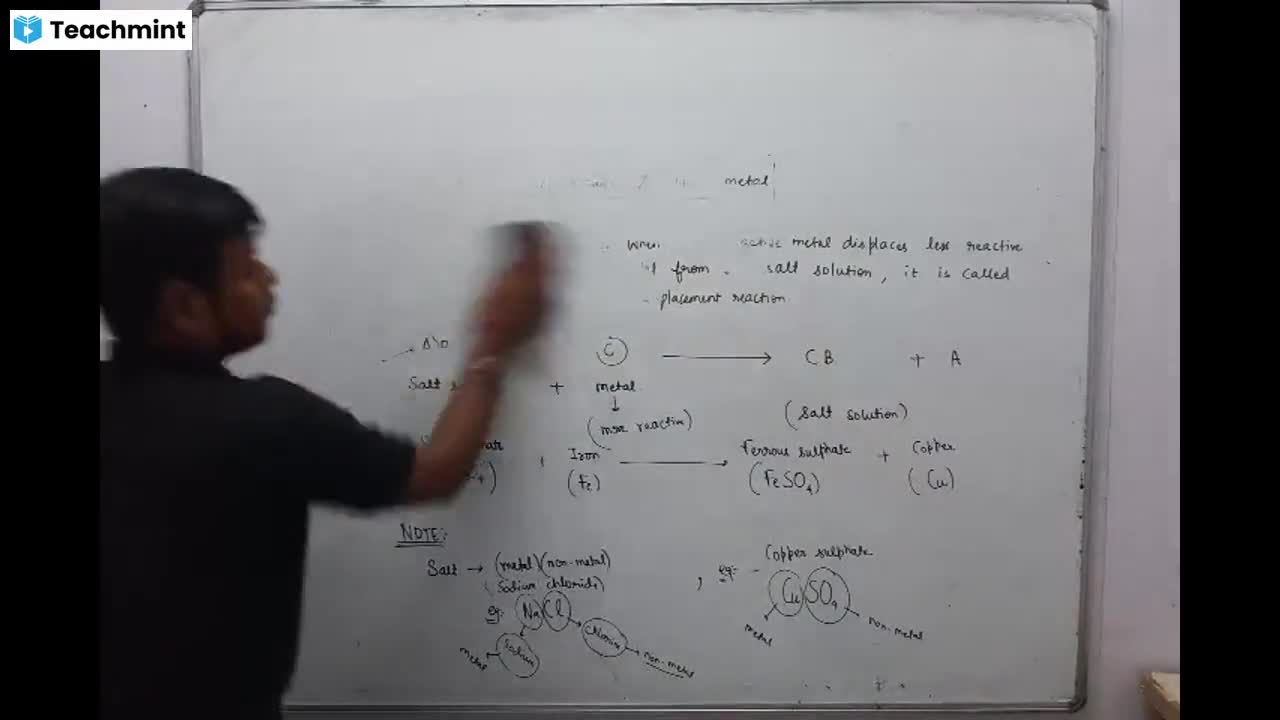 Teachmint
metal
active metal displaces less reactive
from salt solution, it is called
placement reaction
C → CB + A
Salt + metal
↓
(more reactive) (Salt solution)
Iron → Ferrous sulphate + Copper
(Fe) (FeSO4) (Cu)
NOTE:
Salt → (metal)(non-metal)
(Sodium chloride)
eg: NaCl
Sodium Chlorine
metal non-metal
, eg: - Copper sulphate
CuSO4
metal non-metal